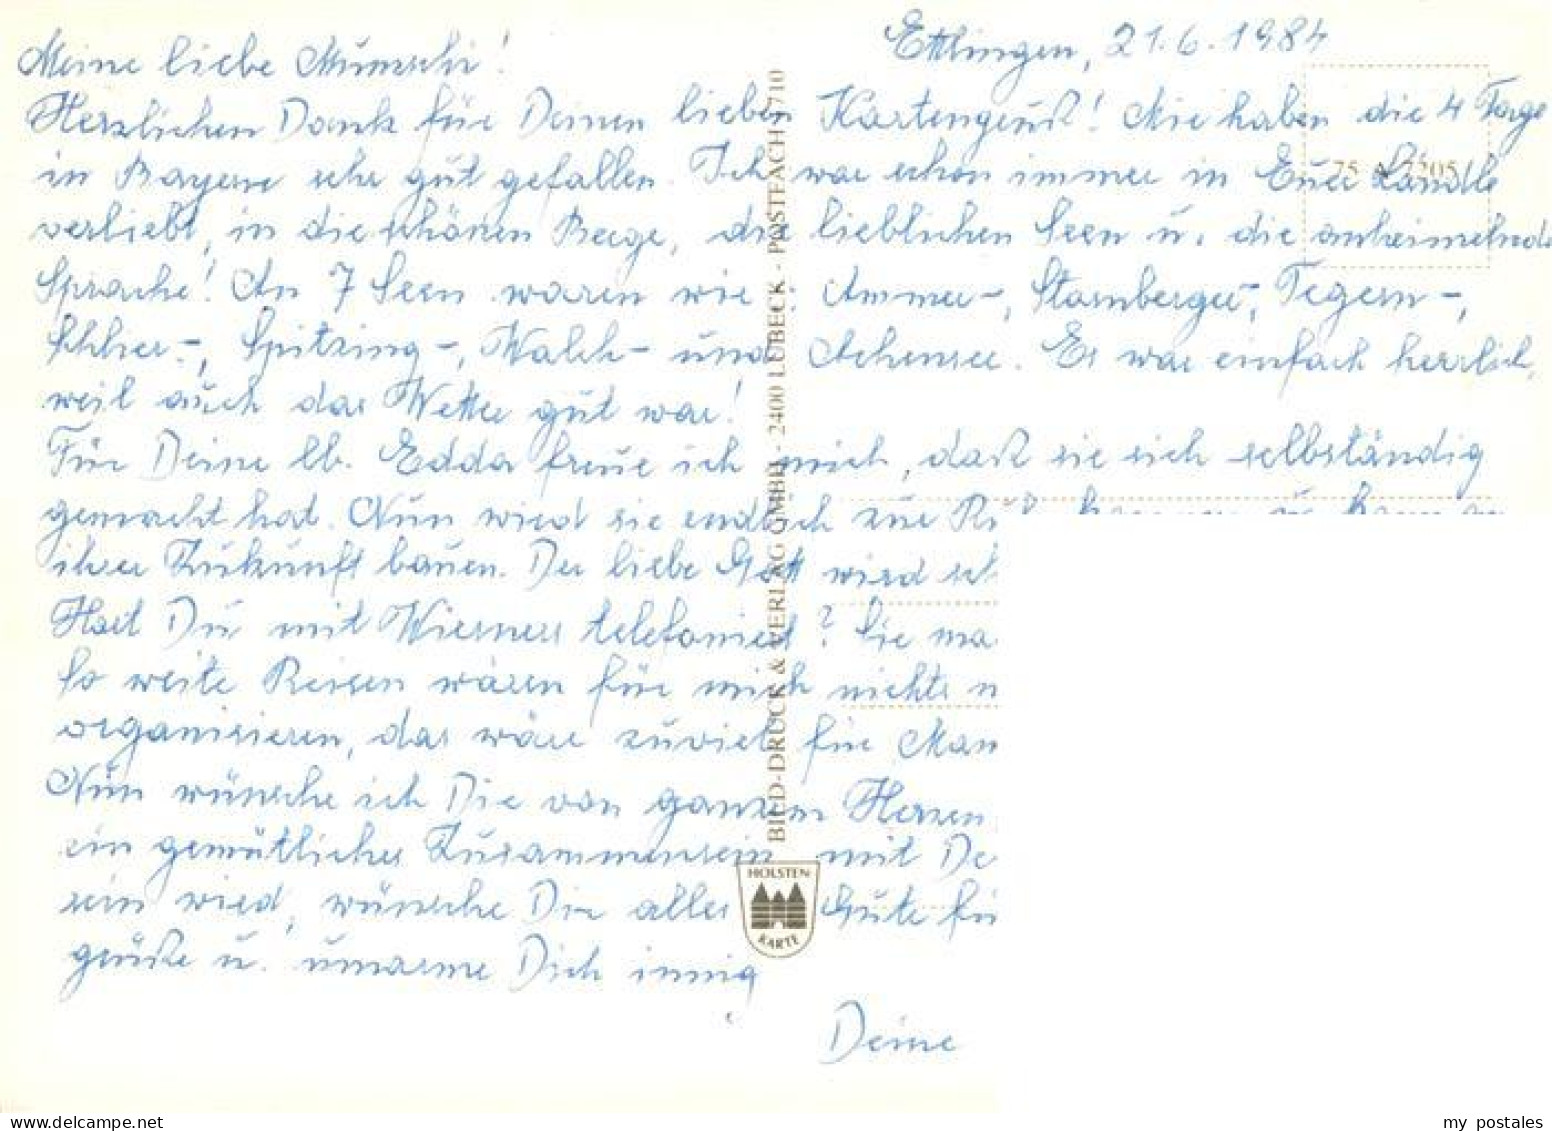 Ettlingen, 21.6.1984
Meine liebe Munschi!
Herzlichen Dank für Deinen lieben Kartengruß! Mir haben die 4 Tage
in Bayern sehr gut gefallen. Ich war schon immer in Euer Ländle
verliebt, in die schönen Berge, die lieblichen Seen u. die anheimelnde
Sprache! An 7 Seen waren wir: Ammer-, Starnberger-, Tegern-,
Schlier-, Spitzing-, Walch- und Achensee. Es war einfach herrlich,
weil auch das Wetter gut war!
Für Deine lb. Edda freue ich mich, daß sie sich selbständig
gemacht hat. Nun wird sie endlich zur
ihrer Zukunft bauen. Der liebe Gott wird
Hast Du mit Wiesners telefoniert? Sie
So weite Reisen wären für mich nichts
organisieren, das wäre zuviel für
Nun wünsche ich Dir von ganzem Herzen
ein gemütliches Zusammensein mit
sein wird, wünsche Dir alles Gute
grüße u. umarme Dich innig
Deine
BILD-DRUCK & VERLAG GMBH - 2400 LÜBECK - POSTFACH 1710
75 A 7205
HOLSTEN
KARTE
www.delcampe.net
my_postales